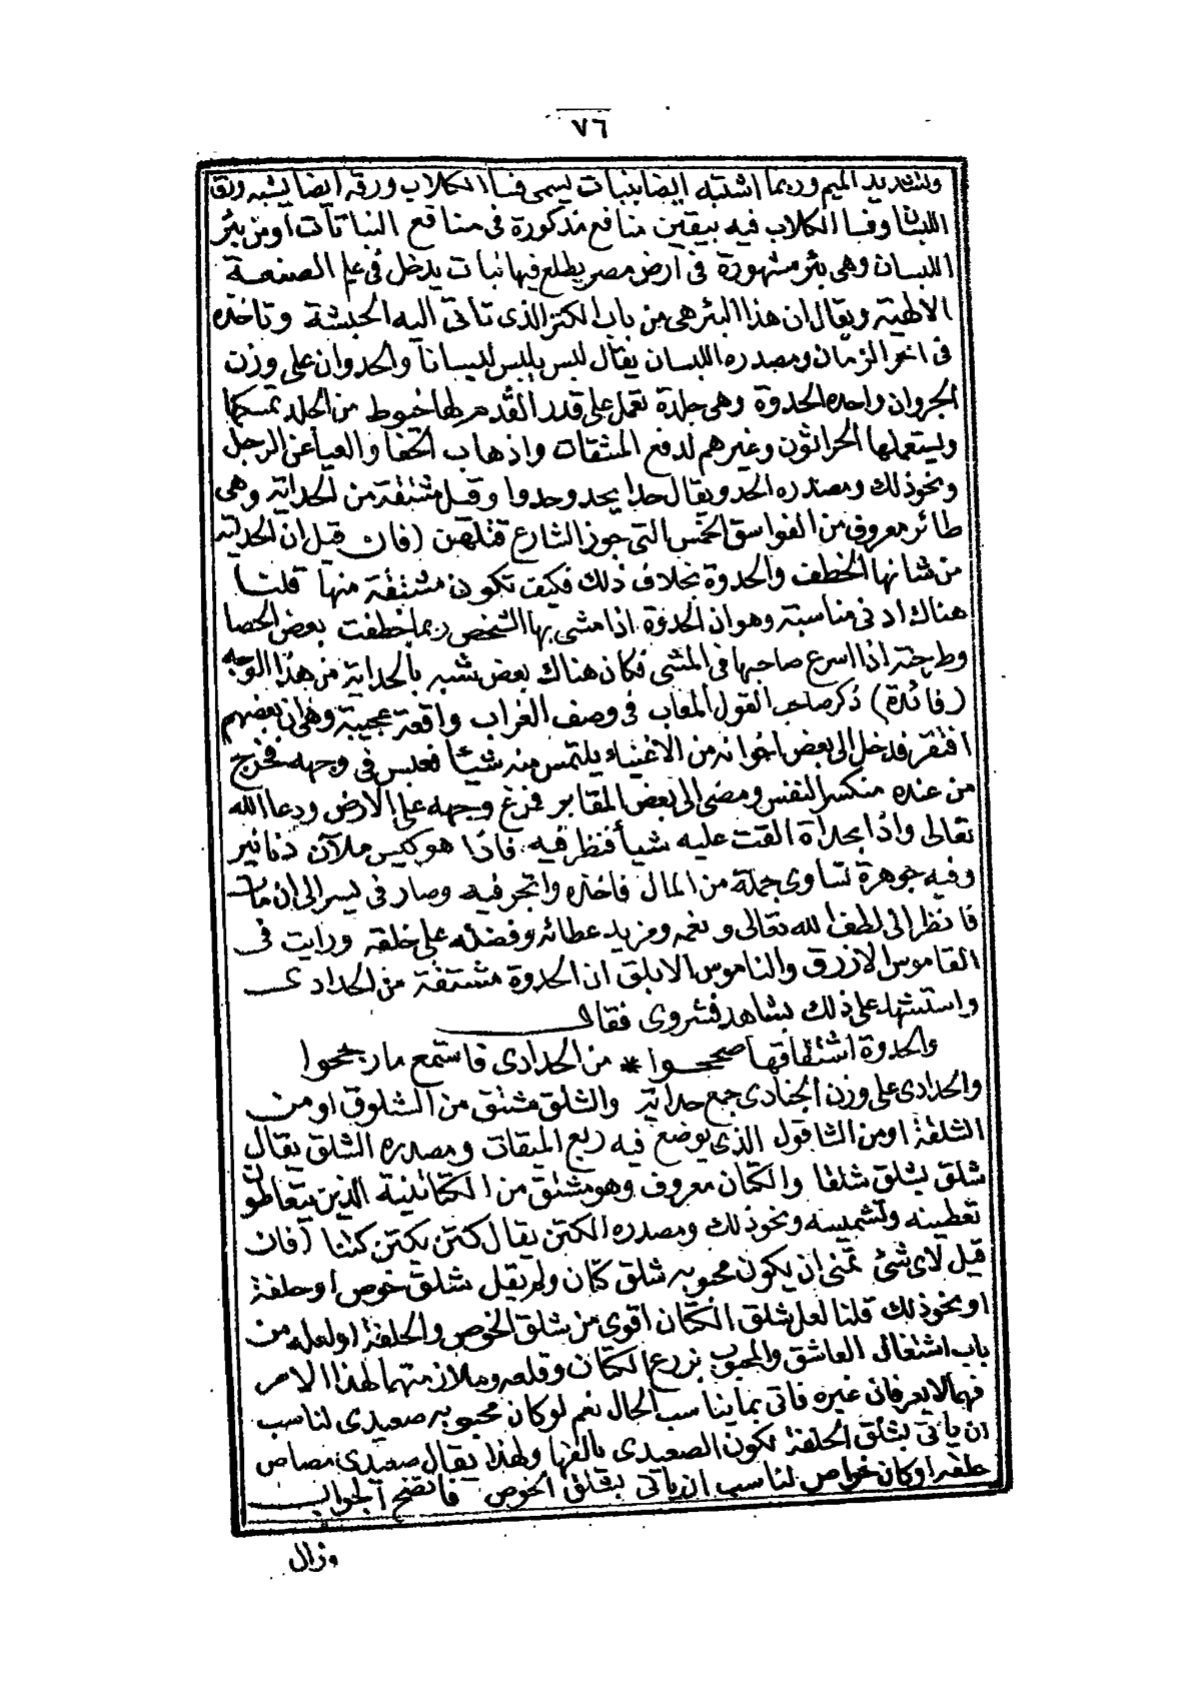 ٧٦
وتشديد الميم وربما اشتبه ايضا بنبات يسمى فسا الكلاب ورقه ايضا يشبه ورق
اللبسان وفسا الكلاب فيه بيقين منافع مذكورة فى منافع النباتات أو من بئر
البلسان وهى بئر مشهورة فى أرض مصر يطلع فيها نبات يدخل فى علم الصنعة
الالهية ويقال ان هذا البئر هى من باب الكنز الذى تاتى اليه الحبشة وتاخذه
فى اخر الزمان ومصدره اللبسان يقال لبس يلبس لبسانا والحدوان على وزن
الجروان واحده الحدوة وهى جلدة تعمل على قدر القدم لها خيوط من الجلد تمسكها
ويستعملها الحراثون وغيرهم لدفع المشقات واذهاب الحفا والعيا عن الرجل
ونحو ذلك ومصدره الحدو يقال حدا يحدو حدوا وقيل مشتقة من الحداية وهى
طائر معروف من الفواسق الخمس التى جوز الشارع قتلهن (فان قيل ان الحداية
من شانها الخطف والحدوة بخلاف ذلك فكيف تكون مشتقة منها قلنا
هناك ادنى مناسبة وهو ان الحدوة اذا مشى بها الشخص ربما خطفت بعض الحصا
وطرحته اذا اسرع صاحبها فى المشى فكان هناك بعض شبه بالحداية من هذا الوجه
(فائدة) ذكر صاحب القول المعاب فى وصف الغراب واقعة عجيبة وهى ان بعضهم
افتقر فدخل الى بعض اخوانه من الاغنياء يلتمس منه شيئا فعبس فى وجهه فخرج
من عنده منكسر النفس ومضى الى بعض المقابر فمرغ وجهه على الارض ودعا الله
تعالى واذا بحداة القت عليه شيأ فنظر فيه فاذا هو كيس ملآن دنانير
وفيه جوهرة تساوى جملة من المال فاخذه واتجر فيه وصار فى يسر الى ان مات
فانظر الى لطف الله تعالى ونعمه ومزيد عطائه وفضله على خلقه ورايت فى
القاموس الازرق والناموس الابلق ان الحدوة مشتقة من الحدادى
واستشهد على ذلك بشاهد فشروى فقال
والحدوة اشتقاقها صححوا * من الحدادى فاستمع ما رجحوا
والحدادى على وزن الجنادى جمع حداية والشلق مشتق من الشلوق او من
الشلقة او من الشاقول الذى يوضع فيه ربع الميقات ومصدره الشلق يقال
شلق يشلق شلقا والكتان معروف وهو مشتق من الكتانية الذين يتعاطون
تعطينه وتشميسه ونحو ذلك ومصدره الكتن يقال كتن يكتن كتنا (فان
قيل لاى شئ تمنى ان يكون محبوبه شلق كتان ولم يقل شلق خوص او حلفة
او نحو ذلك قلنا لعل شلق الكتان اقوى من شلق الخوص والحلفة او لعله من
باب اشتغال العاشق والمحبوب بزرع الكتان وقلعه وملازمتهما لهذا الامر
فهما لا يعرفان غيره فاتى بما يناسب الحال نعم لو كان محبوبه صعيدى لناسب
ان ياتى بشلق الحلفة لكون الصعيدى يالفها ولهذا يقال صعيدى مصاص
حلفه او كان خواص لناسب ان ياتى بشلق الخوص فاتضح الجواب
وزال